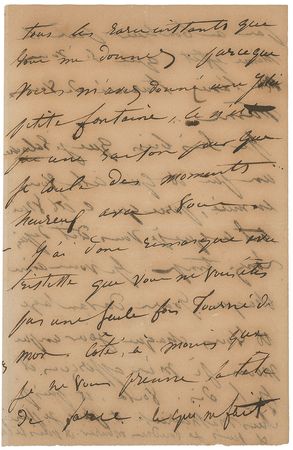 tous les
que
vous me donnez parce que
vous m'avez donné une jolie
petite fontaine, ce n'est
pas une raison pour que
je coule des moments
heureux avec vous
j'ai donc remarqué avec
que vous ne vous êtes
pas une seule fois tourné de
mon côté, à moins que
je ne vous prenne la tête
de force. Ce qui m'fait